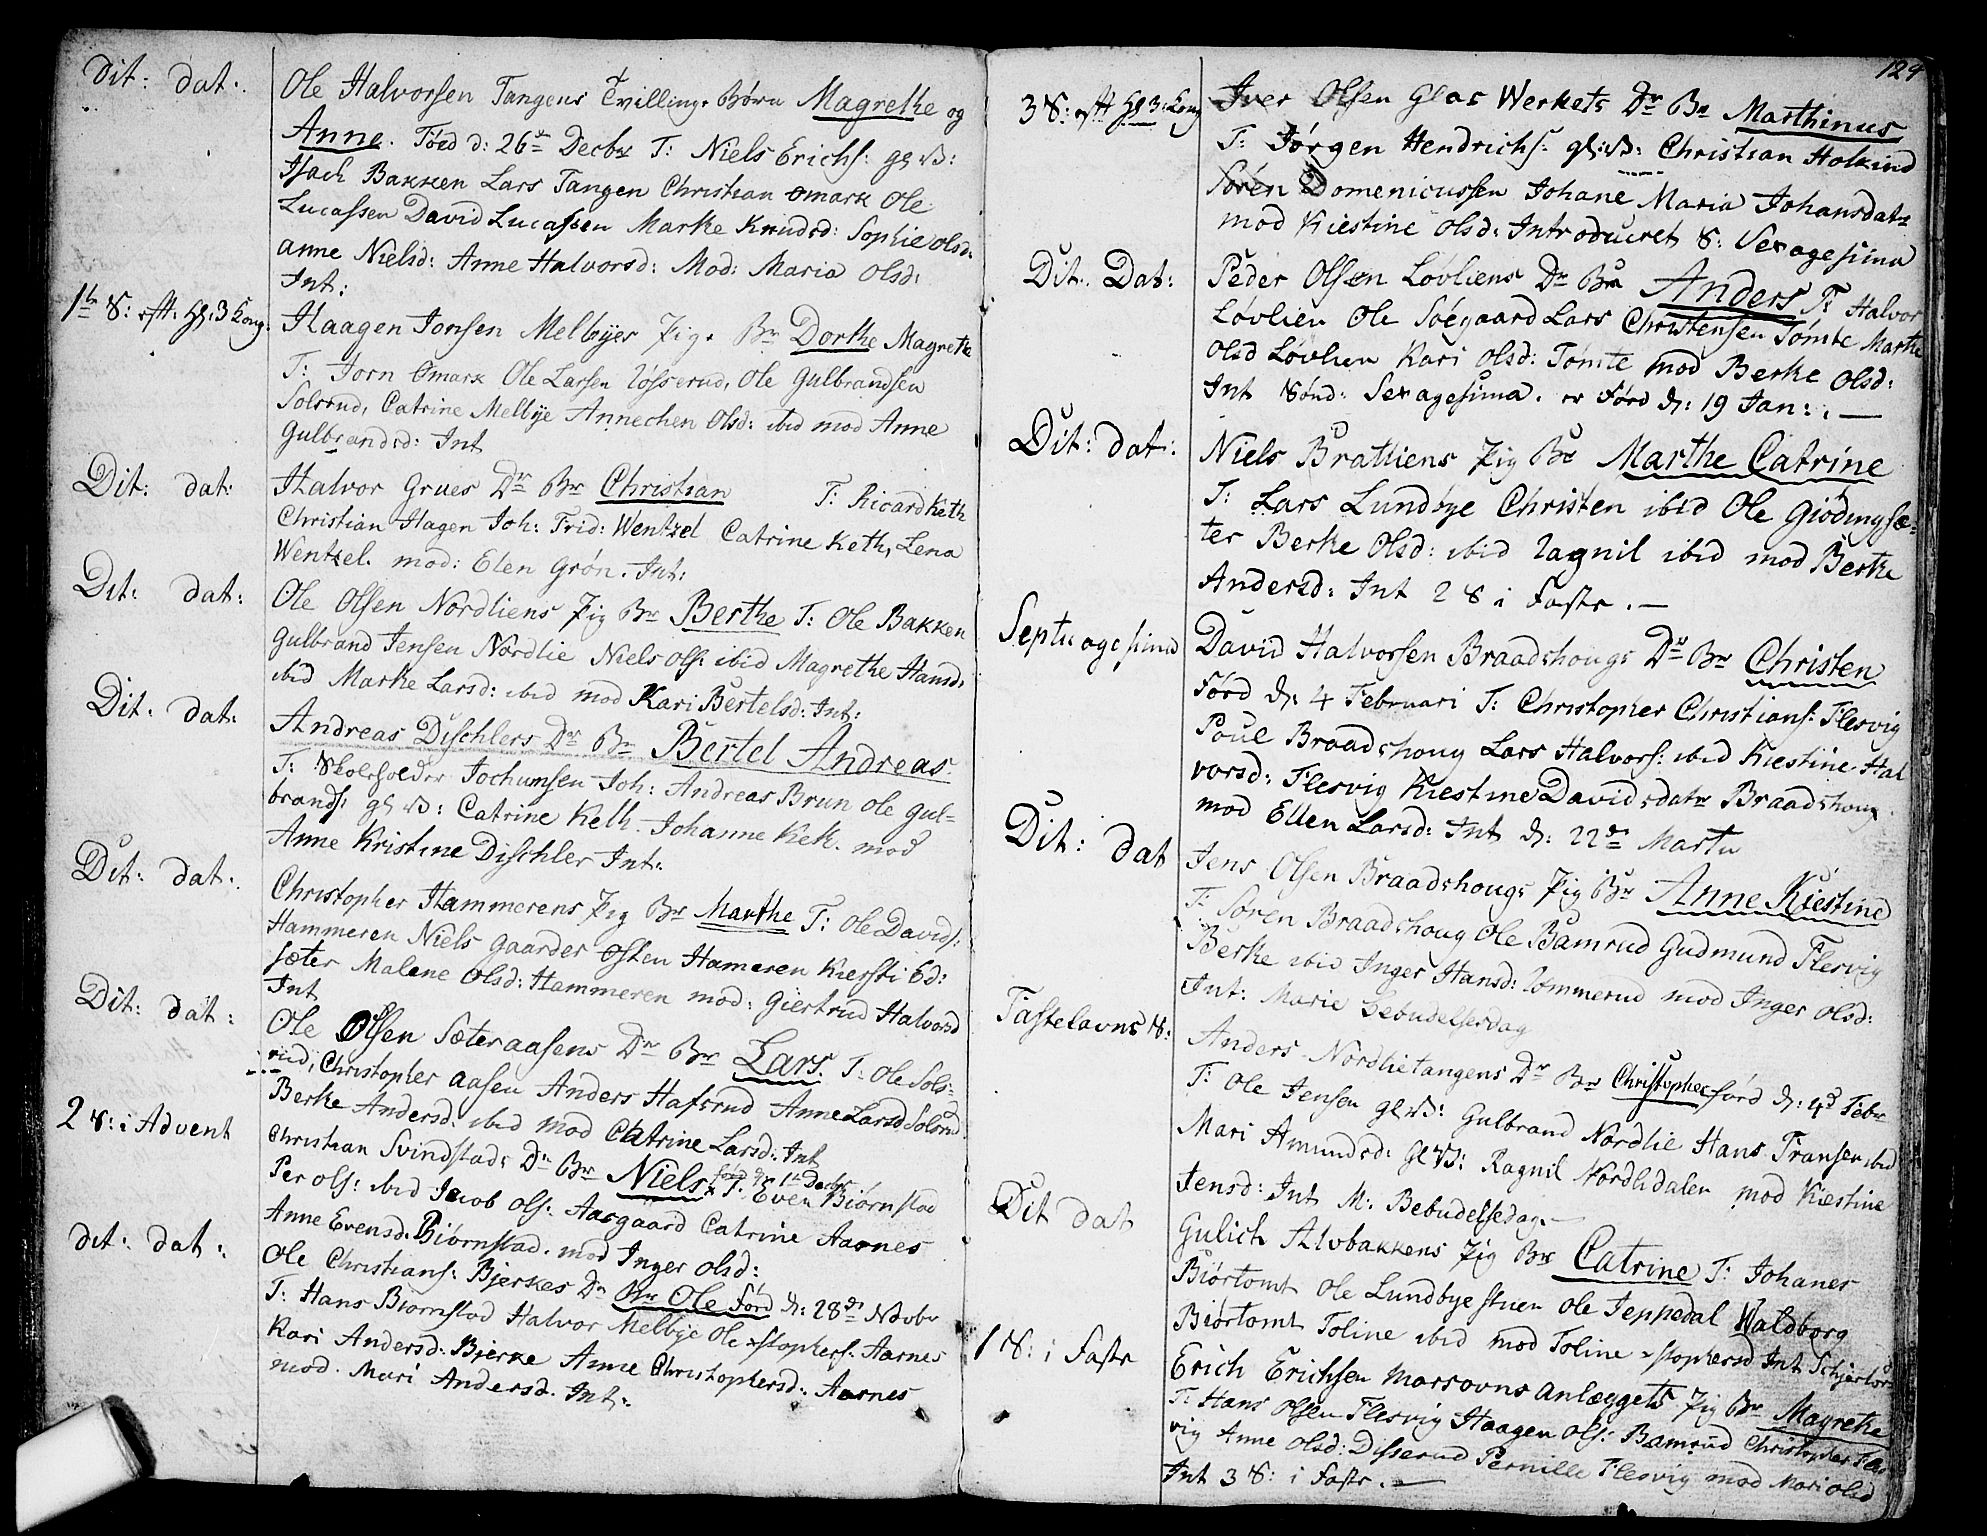 Dit: dat:
Ole Halvorsen Tangens Tvilling. Børn Magrethe og
Anne. Førd d: 26de Decbr T: Niels Erichs: gl: V:
Isach Bakken Lars Tangen Christian Omark Ole
Lucassen David Lucassen Marthe Knudsd: Sophie Olsd:
Anne Nielsd: Anne Halvorsd: Mod: Maria Olsd:
Int:
1te S: eft. Hl. 3 Kong.
Haagen Jonsen Melbyes Pig. Br Dorthe Magrethe
T: Jorn Omark Ole Larsen Røsserud, Ole Gulbrandsen
Solsrud, Catrine Melbye Annechen Olsd: ibid mod Anne
Gulbrandsd: Int
Dit: dat:
Halvor Grues Dr Br Christian T: Ricard Keth
Christian Hagen Joh: Frid: Wentzel Catrine Keth, Lena
Wentzel. mod: Elen Grøn. Int:
Dit: dat:
Ole Olsen Nordliens Pig Br Berthe T: Ole Bakken
Gulbrand Jensen Nordlie Niels Ols: ibid Magrethe Hansd:
ibid Marthe Larsd: ibid mod Kari Bertelsd: Int:
Dit: dat:
Andreas Dischlers Dr Br Bertel Andreas
T: Skoleholder Jochumsen Joh: Andreas Brun Ole Gul=
brands: gl: V: Catrine Keth. Johanne Keth. mod
Anne Kristine Dischler Int:
Dit: dat:
Christopher Hammerens Pig Br Marthe T: Ole Davids:
Hammeren Niels Gaarder Osten Hameren Kiersti Ed:
sæter Malene Olsd: Hammeren mod: Giertrud Halvorsd
Int
Dit: dat:
Ole Olsen Sæteraasens Dr Br Lars. T: Ole Sols:
rud, Christopher Aasen Anders Hafsrud Anne Larsd Solsrud
Berthe Andersd: ibid mod Catrine Larsd: Int
2 S: i Advent
Christian Svindstads Dr Br Niels førd d: 1te Decbr T: Even Biørnstad
Per Ols: ibid Jacob Ols: Aasgaard Catrine Aarnes
Anne Evensd. Biørnstad. mod Inger Olsd:
dit: dat:
Ole Christians: Bjerkes Dr Br Ole Førd d: 28de Novbr
T: Hans Biørnstad Halvor Melbye Ole xstophers: Aarnes
Kari Andersd: Bjerke Anne Christophersd: Aarnes
mod. Mari Andersd. Int:
124
3 S: eft Hl 3: Kong
Iver Olsen Glas Werkets Dr Br Marthinus
T: Jørgen Hendrichs: gl: V: Christian Holkind
Søren Domenicussen Johane Maria Johansdatr
mod Kiestine Olsd: Introduceret S: Sexagesima
Dit. Dat:
Peder Olsen Løvliens Dr Br Anders T: Halvor
Løvlien Ole Søegaard Lars Christensen Tømte Marthe
Olsd Løvlien Kari Olsd: Tømte mod Berthe Olsd:
Int Sønd: Sexagesima. er Førd d: 19 Jan: . —
Dit: dat:
Niels Bratliens Pig Br Marthe Catrine
T: Lars Lundbye Christen ibid Ole Giødingsæ=
ter Berthe Olsd: ibid Ragnil ibid mod Berthe
Andersd: Int 2 S i Faste. —
Septuagesima
David Halvorsen Braadshougs Dr Br Christen
Førd d: 4 Februari T: Christopher Christians: Flesvig
Poul Braadshoug Lars Halvors: ibid Kiestine Hal
vorsd: Flesvig Kiestine Davidsdatr Braadshoug
mod Ellen Larsd: Int d: 22de Martii
Dit: dat
Jens Olsen Braadshougs Pig Br Anne Kiestine
T: Søren Braadshoug Ole Bamrud Gudmund Flesvig
Berthe ibid Inger Hansd: Rommerud mod Inger Olsd:
Int: Marie Bebudelsesdag
Fastelavns S:
Anders Nordlietangens Dr Br Christopher førd d: 4d Febr
T: Ole Jensen gl: V: Gulbrand Nordlie Hans Fransen ibid
Mari Amundsd: Gl V: Ragnil Nordlidalen mod Kiestine
Jensd: Int M: Bebudelsedag. —
Dit dat
Gulich Alvbakkens Pig Br Catrine T: Johanes
Biørtomt Ole Lundbyestuen Ole Jeppedal Waldborg
Biørtomt Toline ibid mod Toline xstophersd Int Schjertorsd
1 S: i Faste
Erich Erichsen Marsovns Anlæggets Pig Br Magrethe
T: Hans Olsen Flesvig Haagen Ols: Bamrud Christopher Fles
vig Anne Olsd: Disserud Pernille Flesvig mod Mari Olsd
Int 3 S: i Faste. —